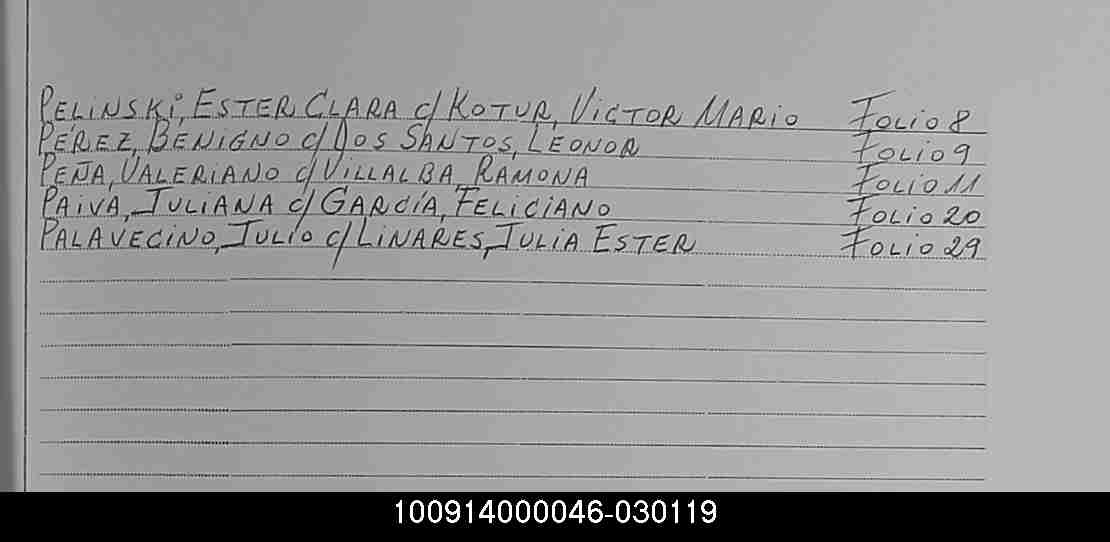 PELINSKI, ESTER CLARA c/ KOTUR, VICTOR MARIO Folio 8
PÉREZ, BENIGNO c/ DOS SANTOS, LEONOR Folio 9
PEÑA, VALERIANO c/ VILLALBA, RAMONA Folio 11
PAIVA, JULIANA c/ GARCÍA, FELICIANO Folio 20
PALAVECINO, JULIO c/ LINARES, JULIA ESTER Folio 29
100914000046-030119